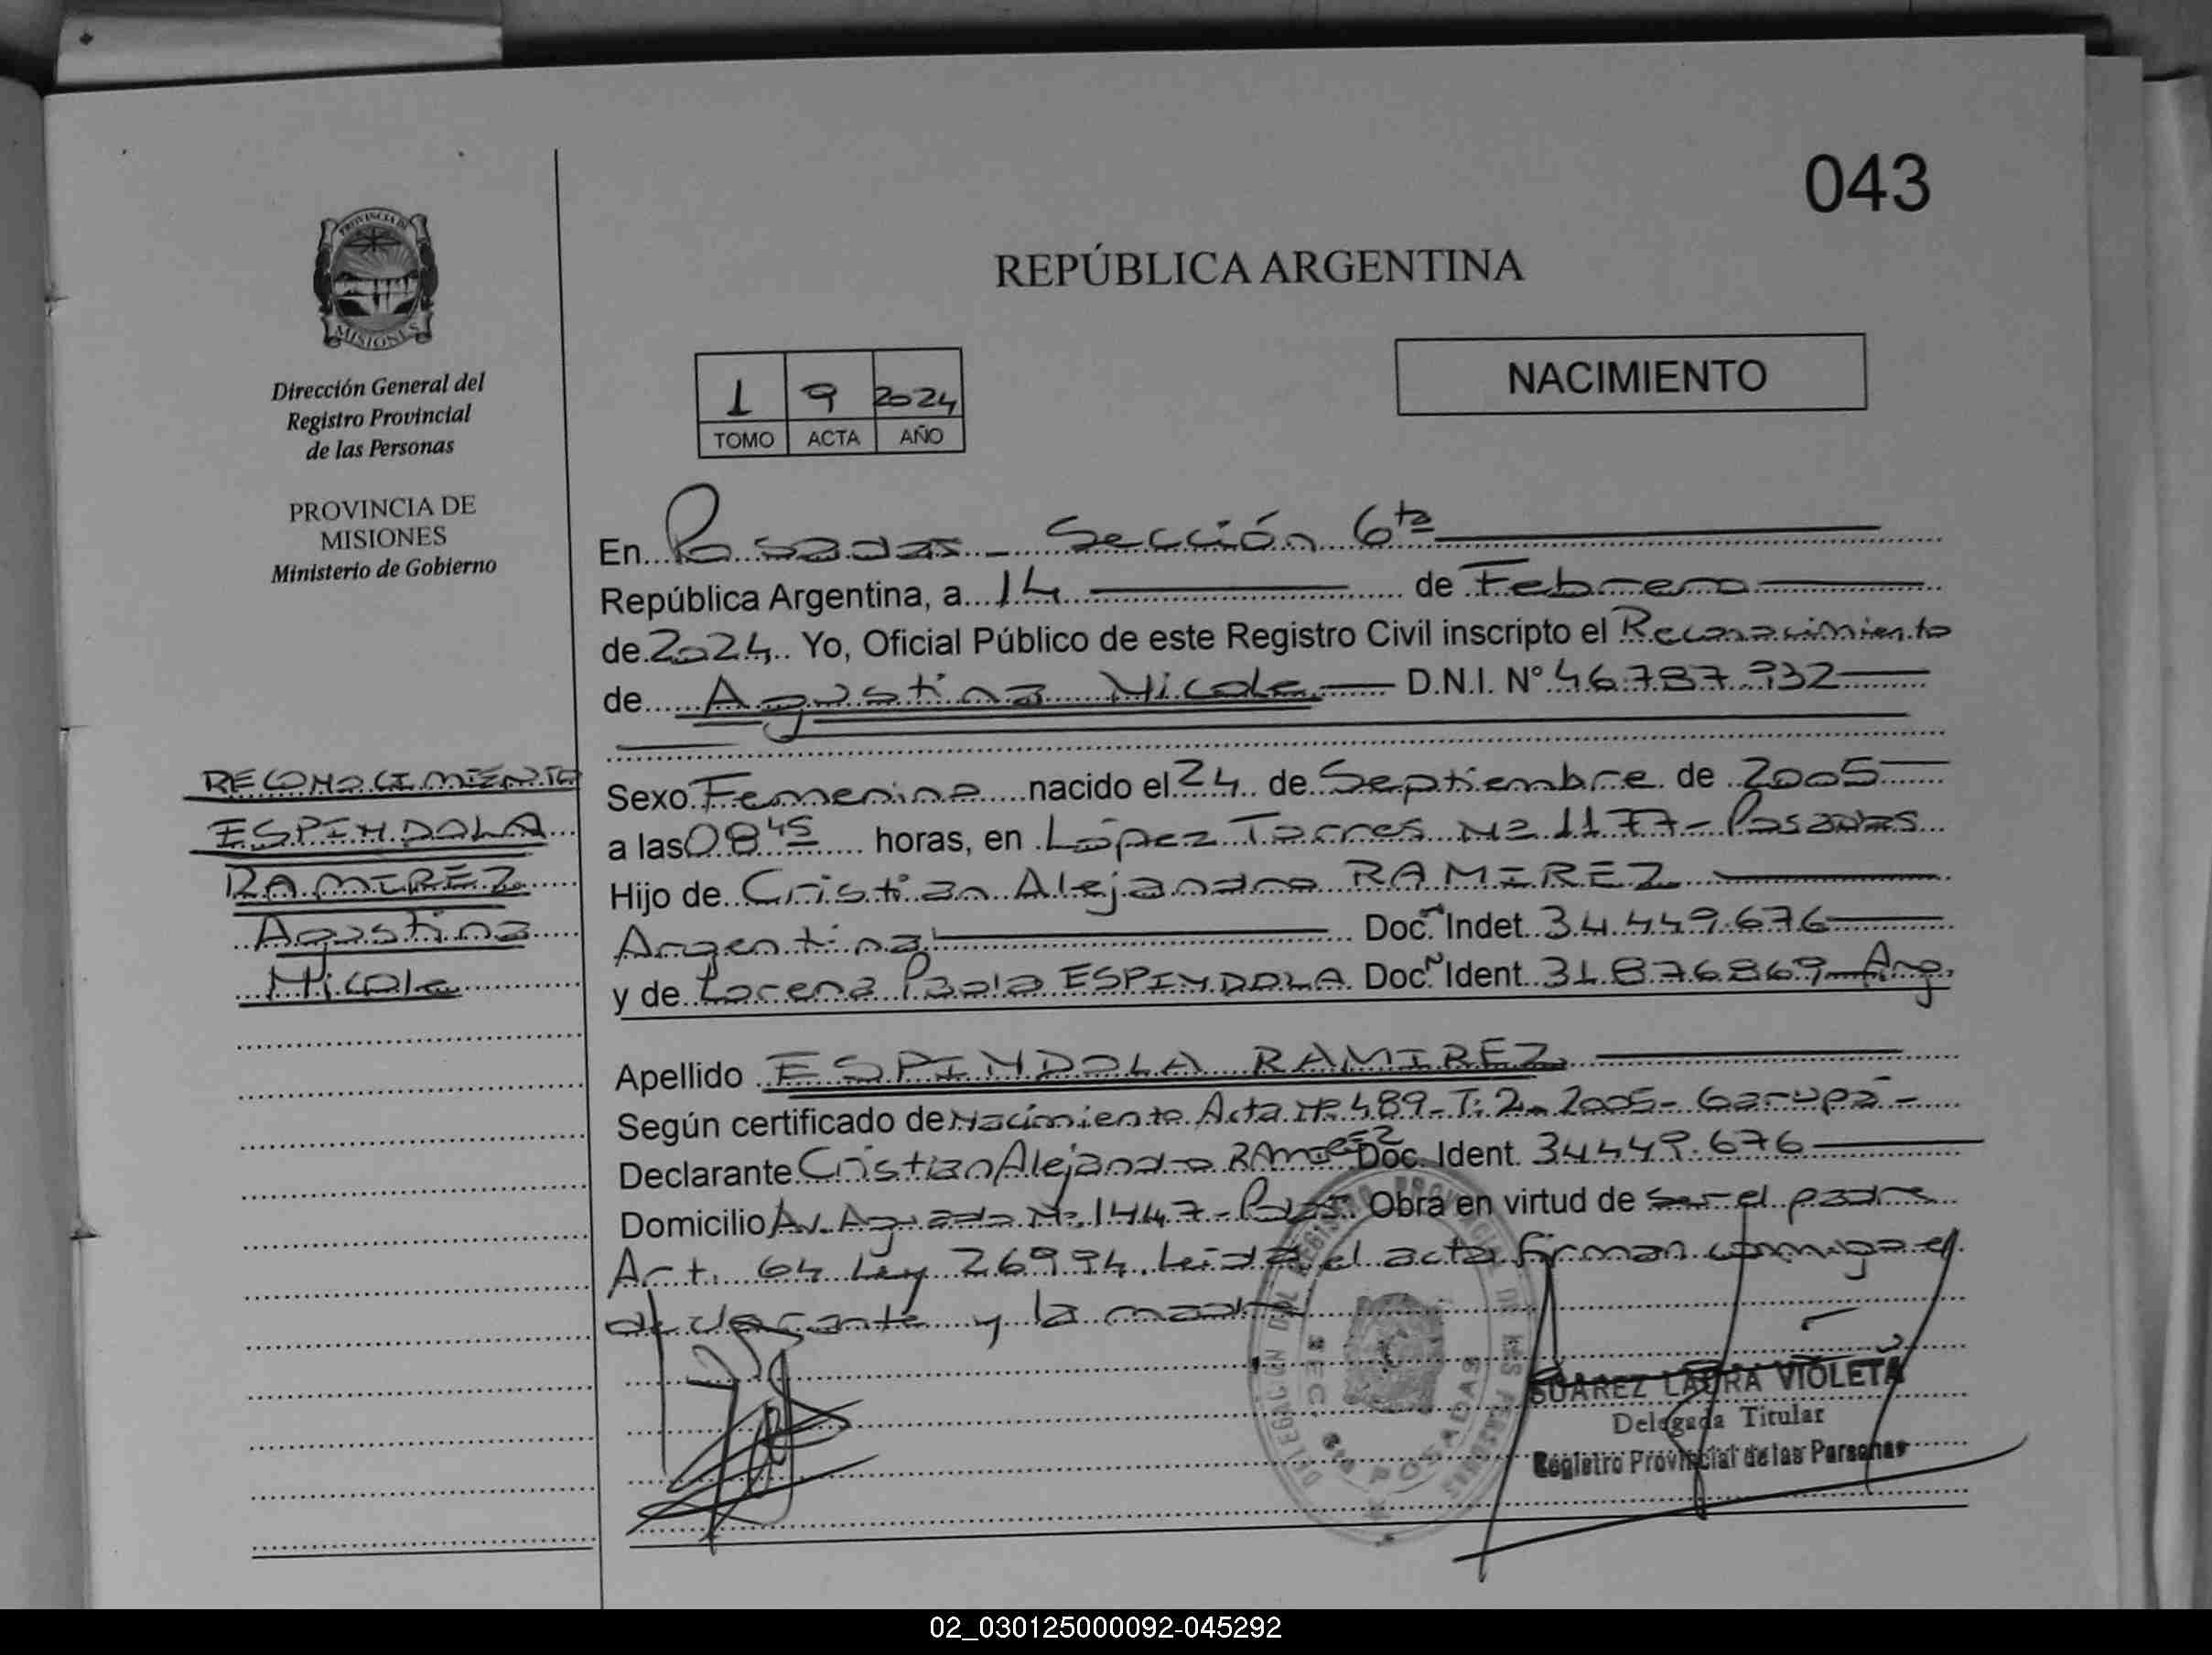 043
PROVINCIA DE
MISIONES
Dirección General del
Registro Provincial
de las Personas
PROVINCIA DE
MISIONES
Ministerio de Gobierno
RECONOCIMIENTO
ESPINDOLA
RAMIREZ
Agustina
Nicole
REPÚBLICA ARGENTINA
1 9 2024
TOMO ACTA AÑO
NACIMIENTO
En Posadas - Sección 6ta
República Argentina, a 14 de Febrero
de 2024 Yo, Oficial Público de este Registro Civil inscripto el Reconocimiento
de Agustina Nicole D.N.I. N° 46.787.932
Sexo Femenino nacido el 24 de Septiembre de 2005
a las 08 45 horas, en López Torres Nº 1177 - Posadas
Hijo de Cristian Alejandro RAMIREZ
Argentina Doc. Indet. 34.449.676
y de Lorena Paola ESPINDOLA Doc. Ident. 31.876.869 - Arg.
Apellido ESPINDOLA RAMIREZ
Según certificado de Nacimiento Acta Nº 489 - T: 2 - 2005 - Garupá -
Declarante Cristian Alejandro RAMIREZ Doc. Ident. 34.449.676
Domicilio Av. Aguado Nº 1447 - Pdas. Obra en virtud de ser el padre
Art. 64 Ley 26994. Leída el acta firman conmigo el
declarante y la madre
DELEGACIÓN DEL REGISTRO PROVINCIAL DE LAS PERSONAS
SEC. 6ta POSADAS
SUAREZ LAURA VIOLETA
Delegada Titular
Registro Provincial de las Personas
02_030125000092-045292